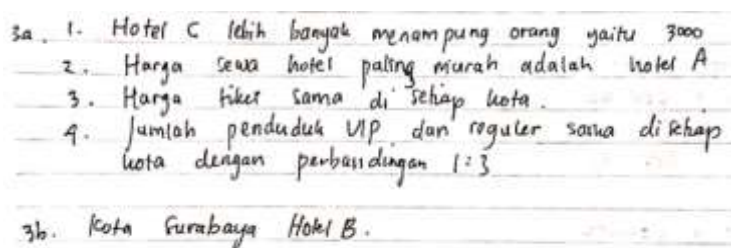 3a. 1. Hotel C lebih banyak menampung orang yaitu 3000
2. Harga sewa hotel paling murah adalah hotel A
3. Harga tiket sama di setiap kota.
4. Jumlah penduduk VIP dan reguler sama di setiap
kota dengan perbandingan 1:3
3b. Kota Surabaya Hotel B.